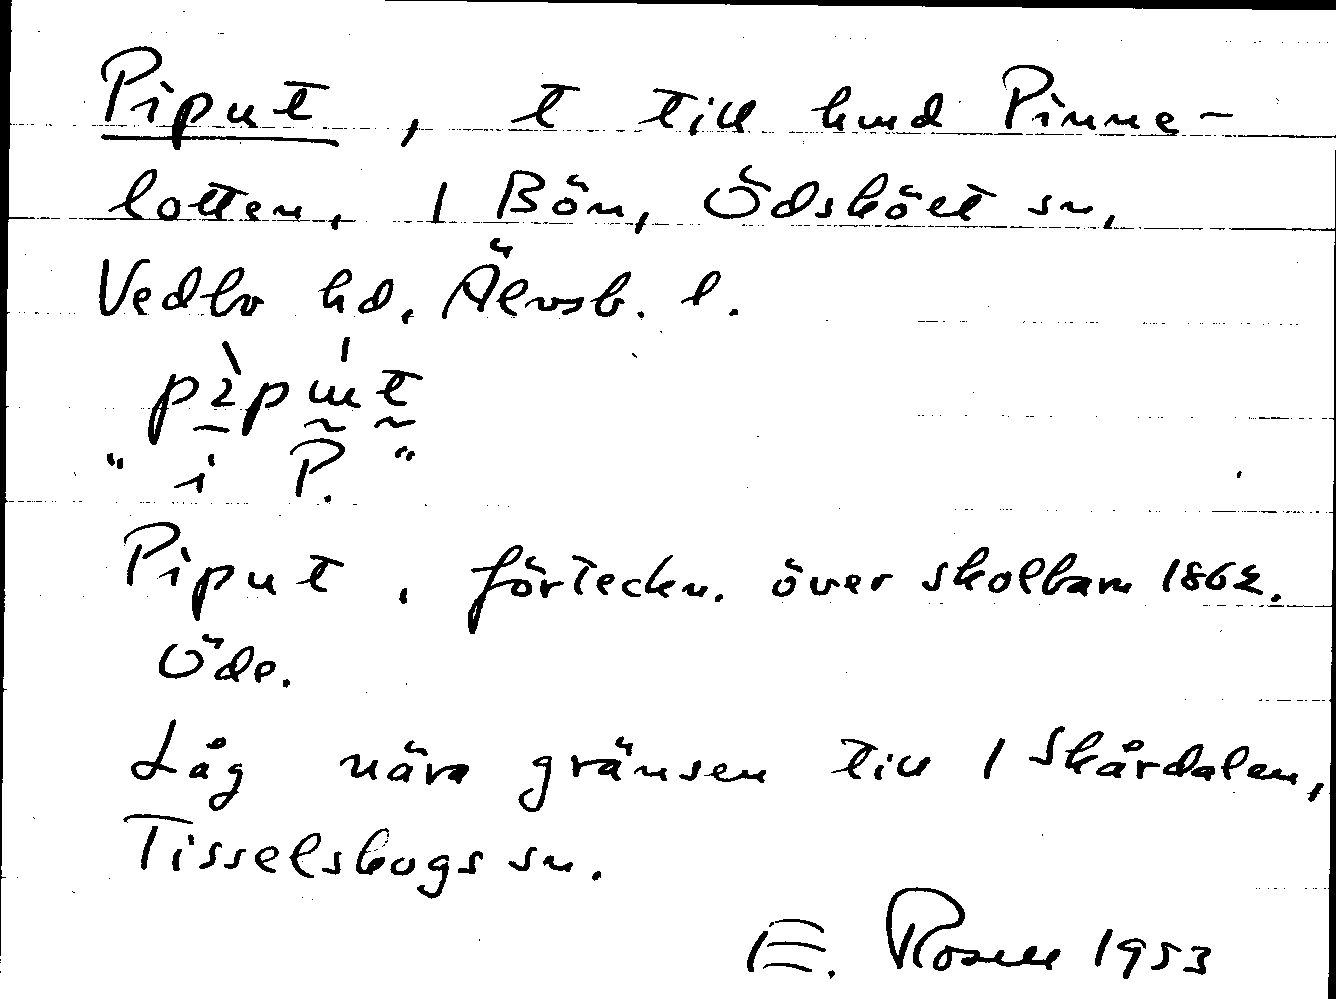 Piput, t till hmd Pinne-
lotten, 1 Bön, Ödskölt sn,
Vedbo hd, Älvsb. l.
" i P. "
Piput, förteckn. över skolbarn 1862.
Öde.
Låg nära gränsen till 1 Skårdalen,
Tisselskogs sn.
E. Rosell 1953